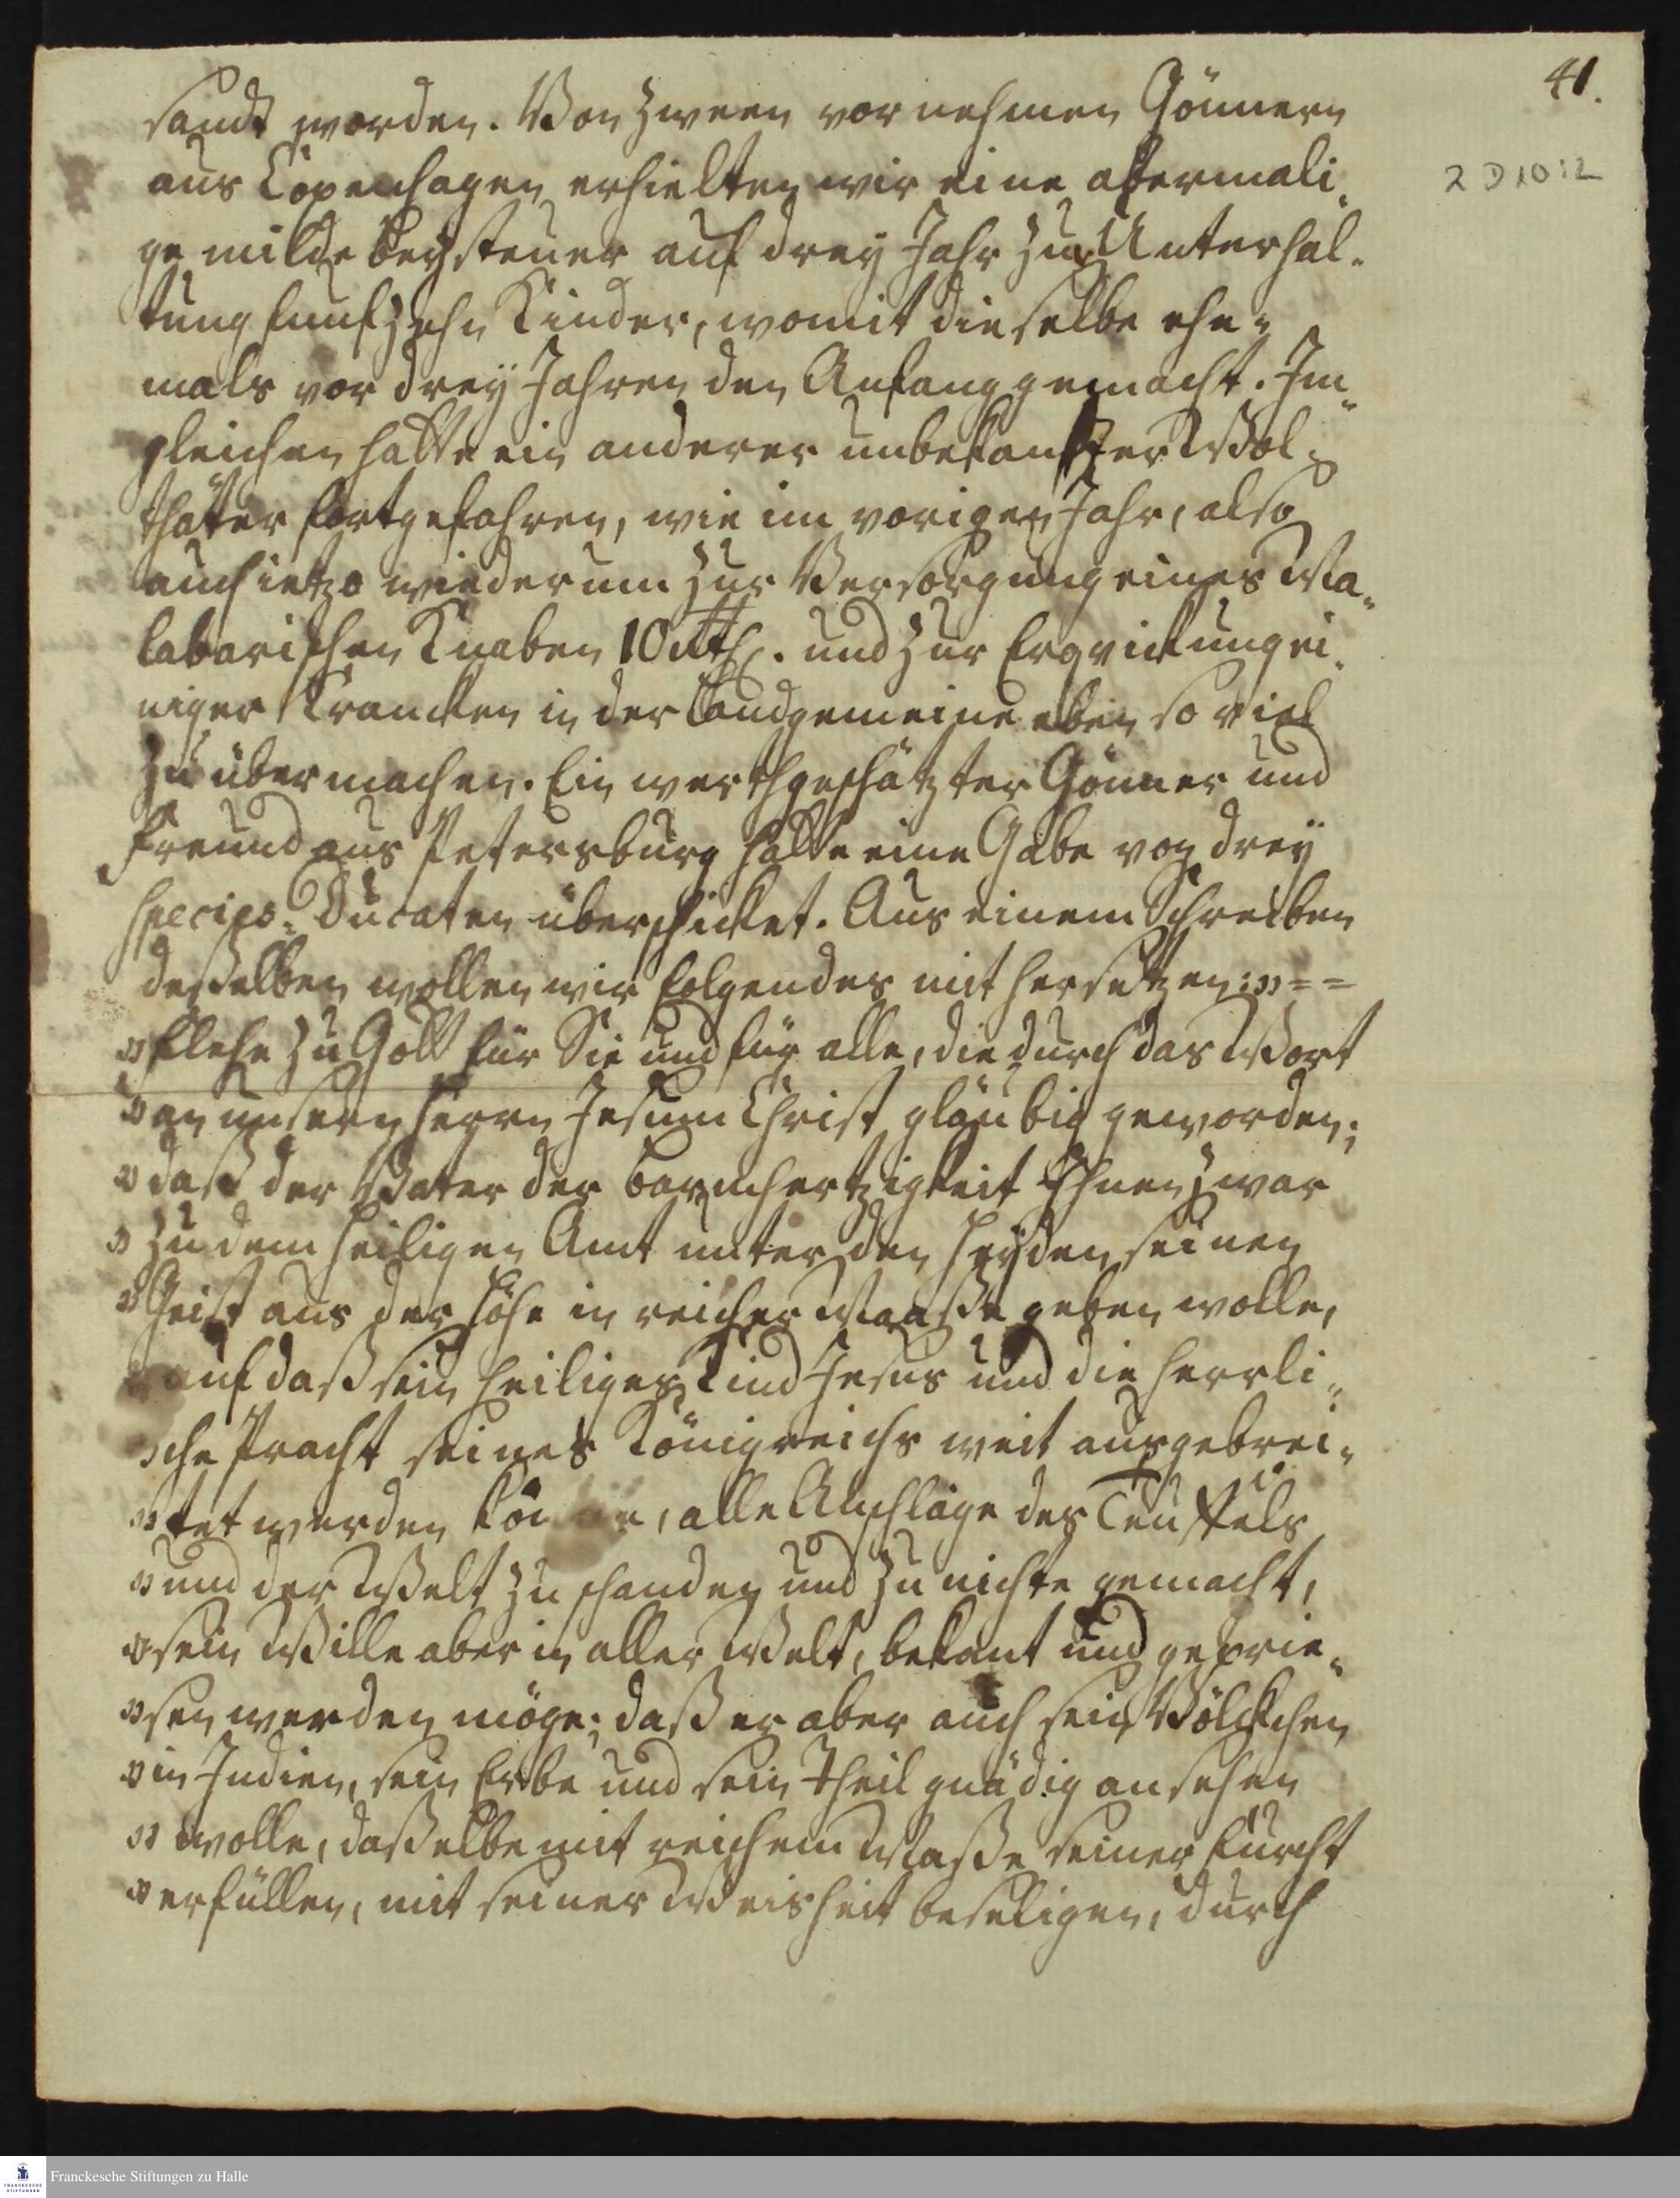 41.
2 D 10:2
sandt worden. Von zween vornehmen Gönnern
aus Copenhagen erhielten wir eine abermali-
ge milde Beysteuer auf drey Jahr zur Unterhal-
tung funfzehn Kinder, womit dieselbe ehe-
mals vor drey Jahren den Anfang gemacht. Im-
gleichen hatte ein anderer unbekanter Wol-
thäter fortgefahren, wie im vorigen Jahr, also
auch ietzo wiederum zur Versorgung eines Ma-
labarischen Knaben 10 Rth. und zur Erqvickung ei-
niger Krancken in der Landgemeine eben so viel
zu übermachen. Ein werthgeschätzter Gönner und
Freund aus Petersburg hatte eine Gabe von drey
species-Ducaten überschicket. Aus einem Schreiben
deßelben wollen wir folgendes mit hersetzen: „ = =
„ flehe zu Gott für Sie und für alle, die durch das Wort
„ an unsern Herrn Jesum Christ gläubig geworden;
„ daß der Vater der Barmhertzigkeit Ihnen zwar
„ zu dem heiligen Amt unter den Heyden seinen
„ Geist aus der Höhe in reicher Maaße geben wolle,
auf daß sein heiliges Kind Jesus und die herrli-
„ che Pracht seines Königreichs weit ausgebrei-
„ tet werden könne, alle Anschläge des Teuffels
„ und der Welt zu schanden und zu nichte gemacht,
„ sein Wille aber in aller Welt, bekant und geprie-
„ sen werden möge; daß er aber auch sein Völckchen
„ in Indien, sein Erbe und sein Theil gnädig ansehen
„ wolle, daßelbe mit reichem Maße seiner Furcht
„ erfüllen, mit seiner Weisheit beseligen, durch
Franckesche Stiftungen zu Halle
FRANCKESCHE
STIFTUNGEN